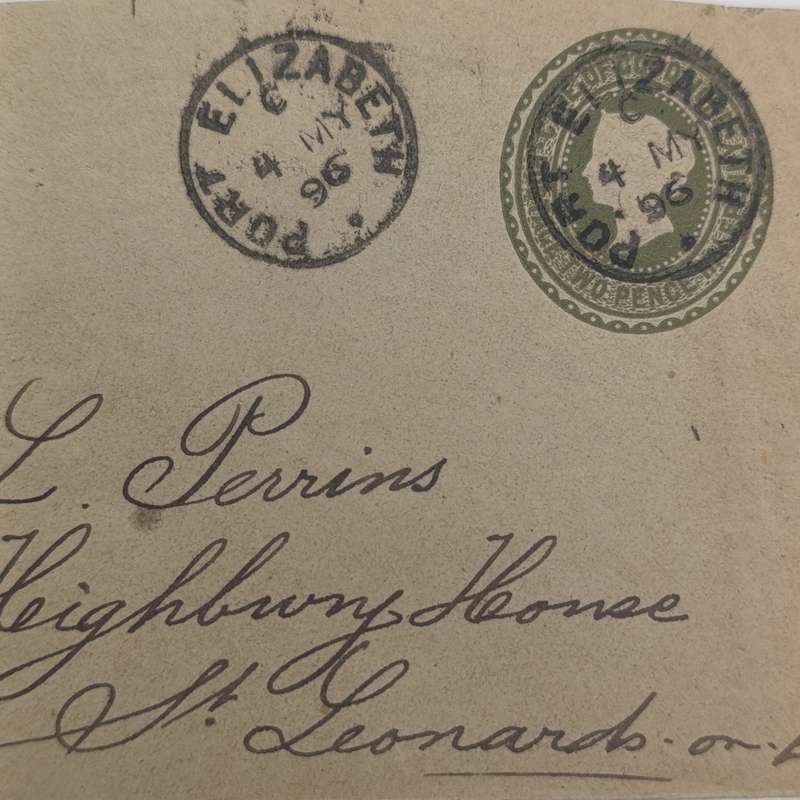 PORT ELIZABETH
C
4 MY
96
PORT ELIZABETH
C
4 MY
96
TWO PENCE
L. Perrins
Highbury House
St. Leonards-on-